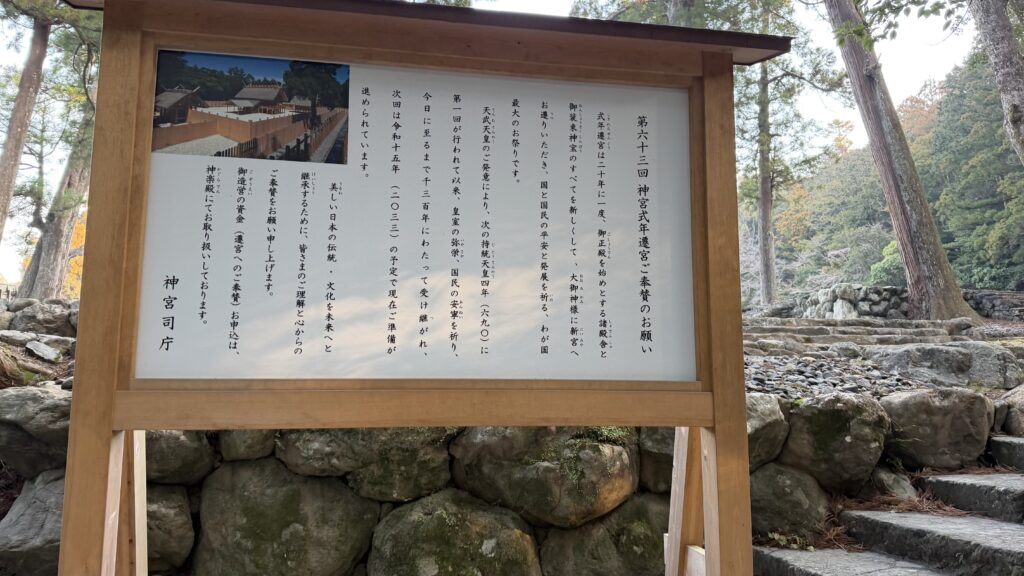 第六十三回 神宮式年遷宮ご奉賛のお願い
式年遷宮は二十年に一度、御正殿を始めとする諸殿舎と
御装束神宝のすべてを新しくして、大御神様に新宮へ
お遷りいただき、国と国民の平安と発展を祈る、わが国
最大のお祭りです。
天武天皇のご発意により、次の持統天皇四年（六九〇）に
第一回が行われて以来、皇室の弥栄、国民の安寧を祈り、
今日に至るまで千三百年にわたって受け継がれ、
次回は令和十五年（二〇三三）の予定で現在ご準備が
進められています。
美しい日本の伝統・文化を未来へと
継承するために、皆さまのご理解と心からの
ご奉賛をお願い申し上げます。
御造営の資金（遷宮へのご奉賛）お申込は、
神楽殿にてお取り扱いしております。
神宮司庁